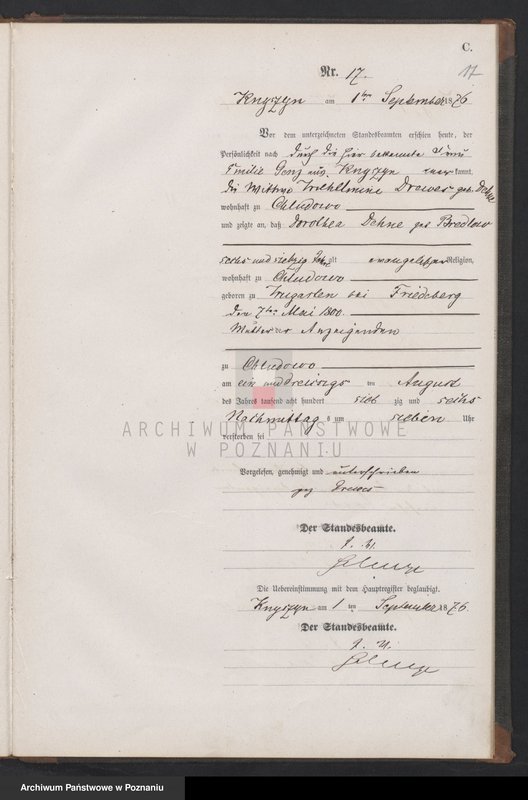 C.
Nr. 17.
17
Knyszyn am 1ten September 1876
Vor dem unterzeichneten Standesbeamten erschien heute, der
Persönlichkeit nach durch die hier bekannte Frau
Emilie Genz aus Knyszyn anerkannt,
die Wittwe Wilhelmine Drewes geb. Dehne
wohnhaft zu Chludowo
und zeigte an, daß Dorothea Dehne geb Bredlow
sechs und siebzig Jahr alt evangelischer Religion,
wohnhaft zu Chludowo
geboren zu bei Friedeberg
den 7ten Mai 1800
Mutter der Anzeigenden
zu Chludowo
am ein und dreißigs ten August
des Jahres tausend acht hundert sieb zig und sechs
Nachmittag s um sieben Uhr
verstorben sei
ARCHIWUM PAŃSTWOWE
W POZNANIU
Vorgelesen, genehmigt und unterschrieben
gez Drewes
Der Standesbeamte.
Die Uebereinstimmung mit dem Hauptregister beglaubigt.
Knyszyn am 1 ten September 1876
Der Standesbeamte.
Archiwum Państwowe w Poznaniu